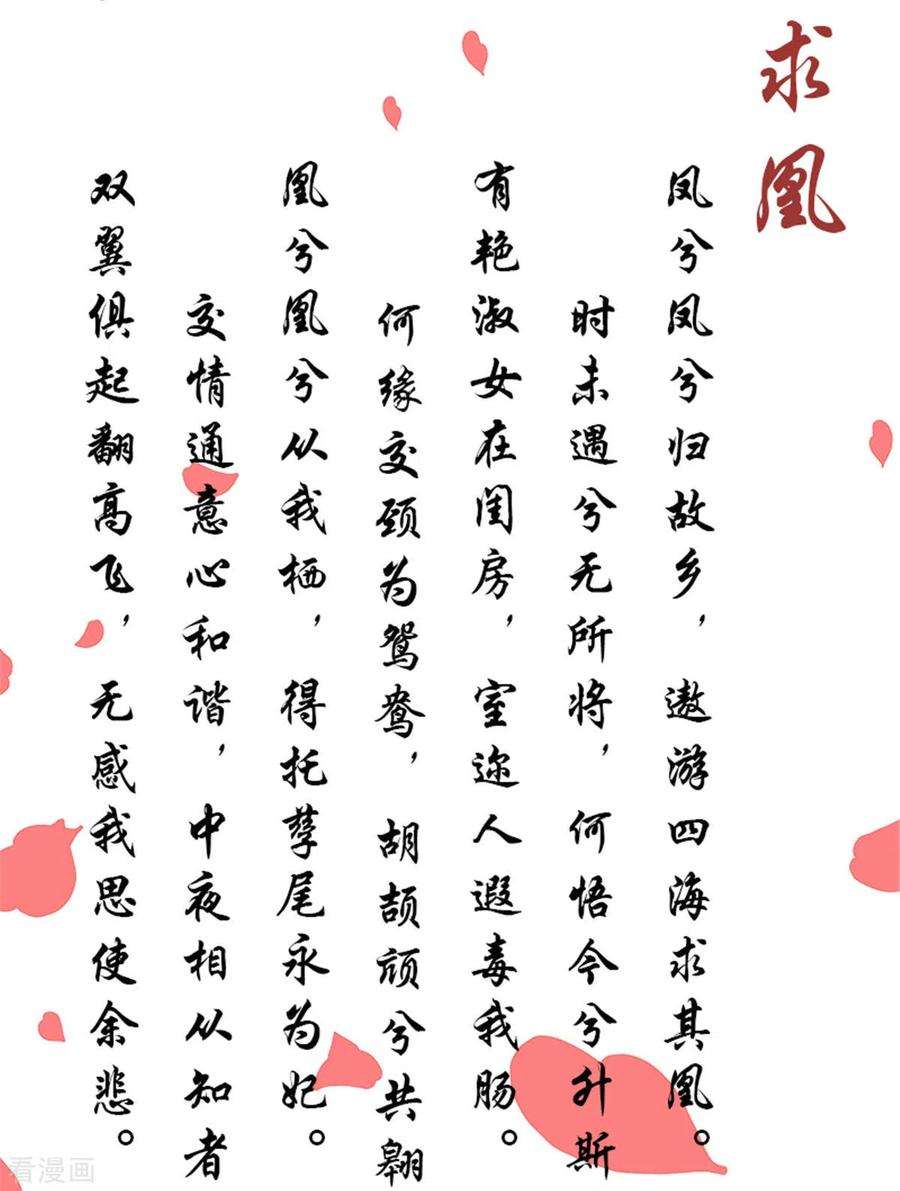 求凰
凤兮凤兮归故乡，遨游四海求其凰。
时未遇兮无所将，何悟今兮升斯
有艳淑女在闺房，室迩人遐毒我肠。
何缘交颈为鸳鸯，胡颉颃兮共翱
凰兮凰兮从我栖，得托孳尾永为妃。
交情通意心和谐，中夜相从知者
双翼俱起翻高飞，无感我思使余悲。
看漫画